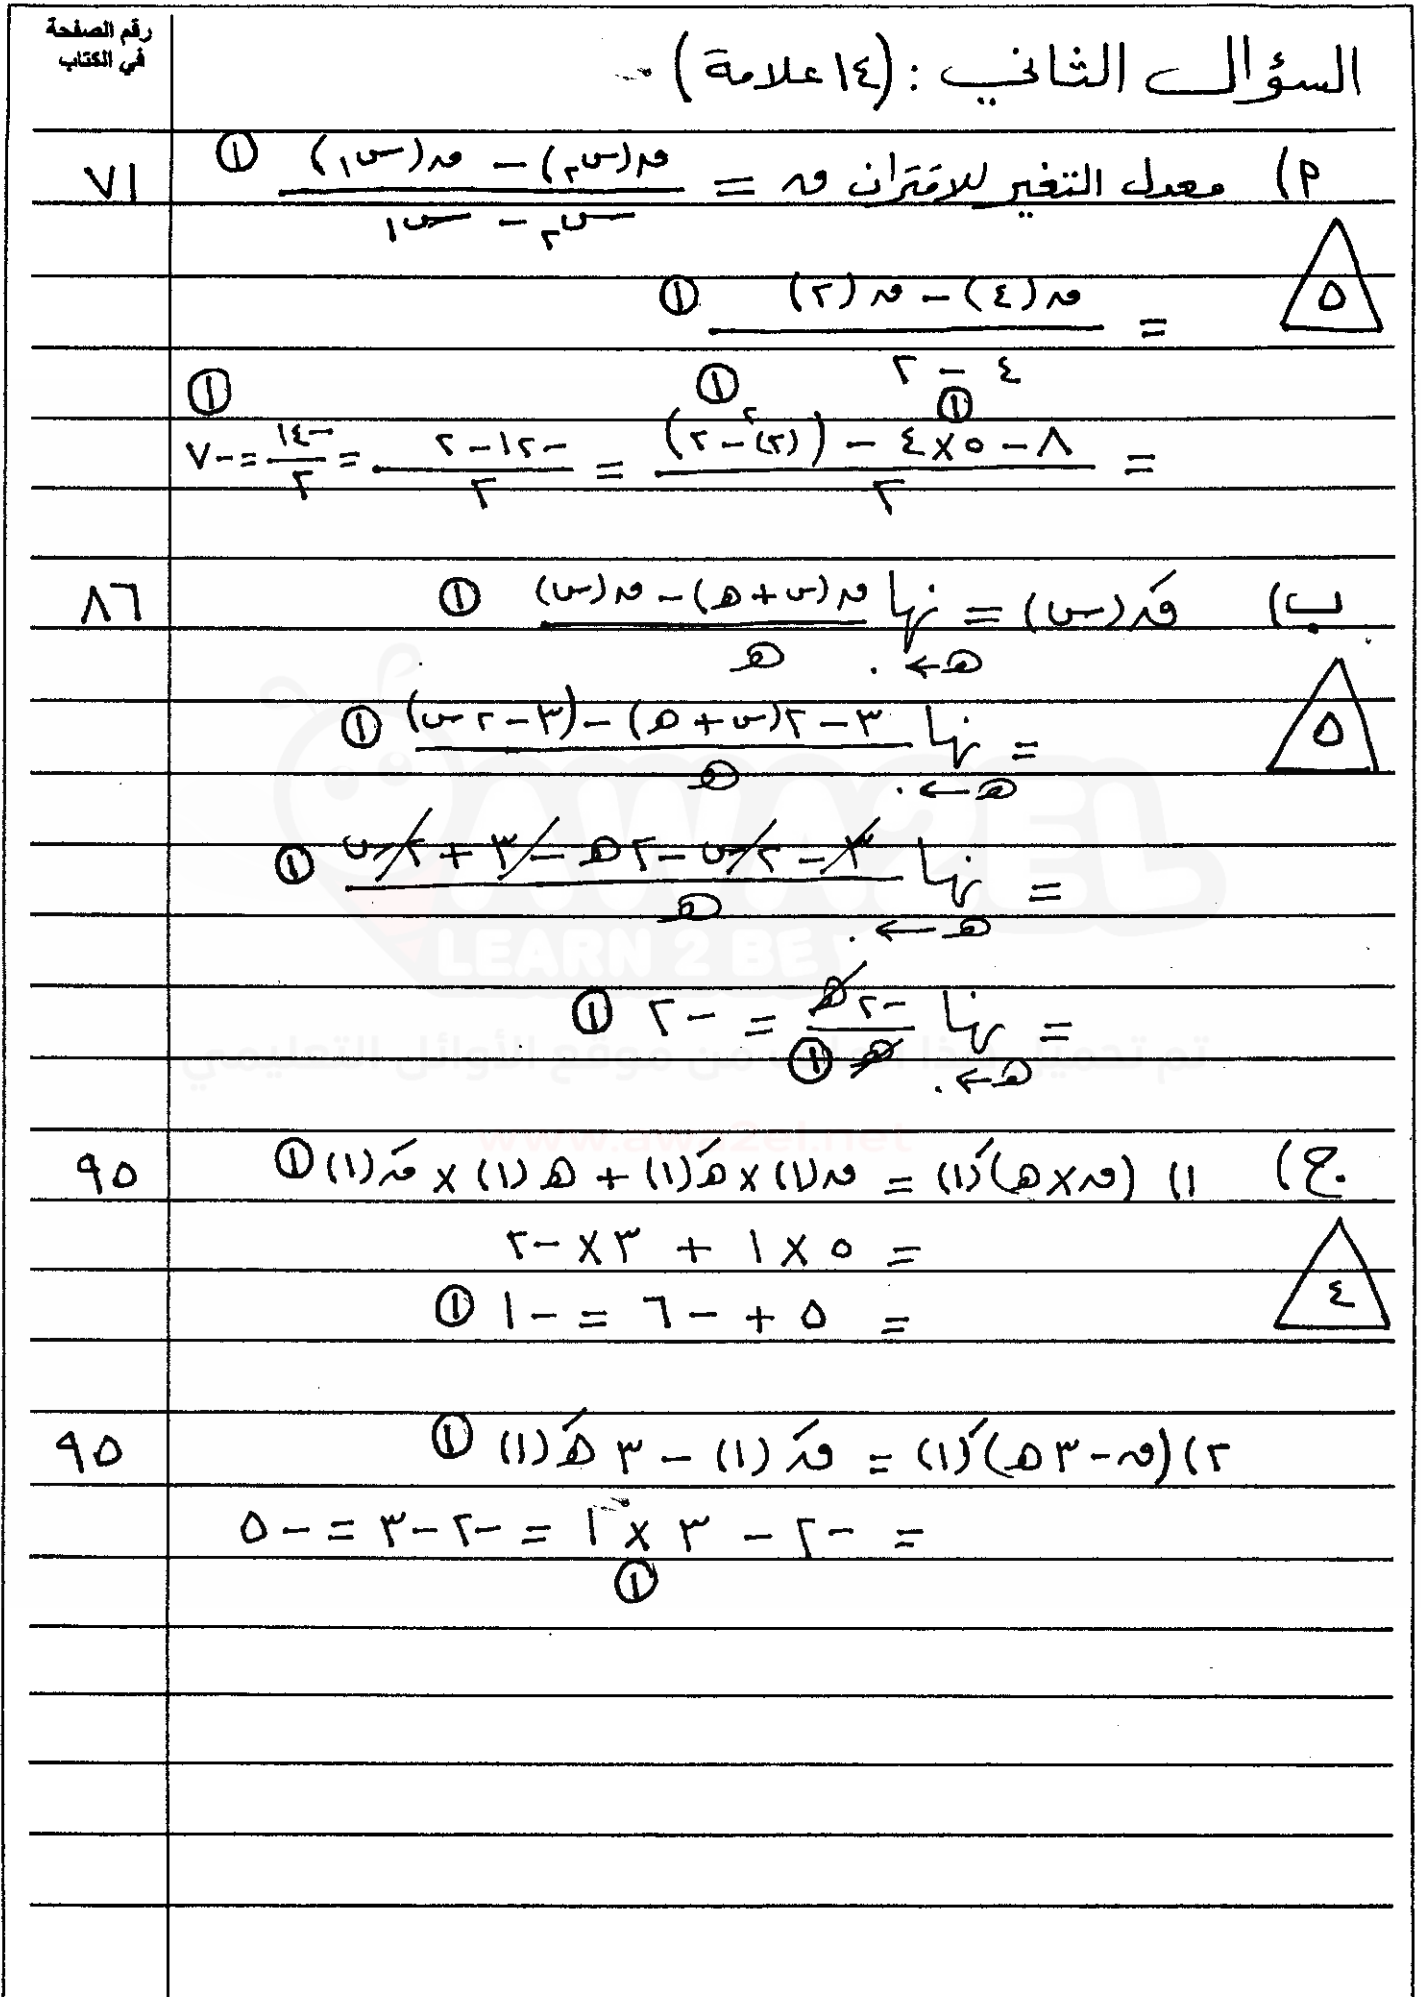 رقم الصفحة
في الكتاب
السؤال الثاني : (١٤ علامة)
٧١
أ) معدل التغير للاقتران ق = (ق(س٢) - ق(س١)) / (س٢ - س١) ①
٥
= (ق(٤) - ق(٢)) / (٤ - ٢) ①
= (٨ - ٥×٤ - ((٢)^٢ - ٢)) / ٢ ① ① = (-١٢ - ٢) / ٢ = -١٤ / ٢ = -٧ ①
٨٦
ب) قَ(س) = نها هـ→٠ (ق(س + هـ) - ق(س)) / هـ ①
٥
= نها هـ→٠ (٣ - ٢(س + هـ) - (٣ - ٢س)) / هـ ①
= نها هـ→٠ (٣ - ٢س - ٢هـ - ٣ + ٢س) / هـ ①
= نها هـ→٠ -٢هـ / هـ ① = -٢ ①
AWA2EL
LEARN 2 BE
تم تحميل هذا الملف من موقع الأوائل التعليمي
www.awa2el.net
٩٥
ج) ١) (ق×هـ)َ(١) = ق(١)×هـَ(١) + هـ(١)×قَ(١) ①
٤
= ٥ × ١ + ٣ × -٢
= ٥ + -٦ = -١ ①
٩٥
٢) (ق - ٣هـ)َ(١) = قَ(١) - ٣هـَ(١) ①
= -٢ - ٣ × ١ = -٢ - ٣ = -٥
①